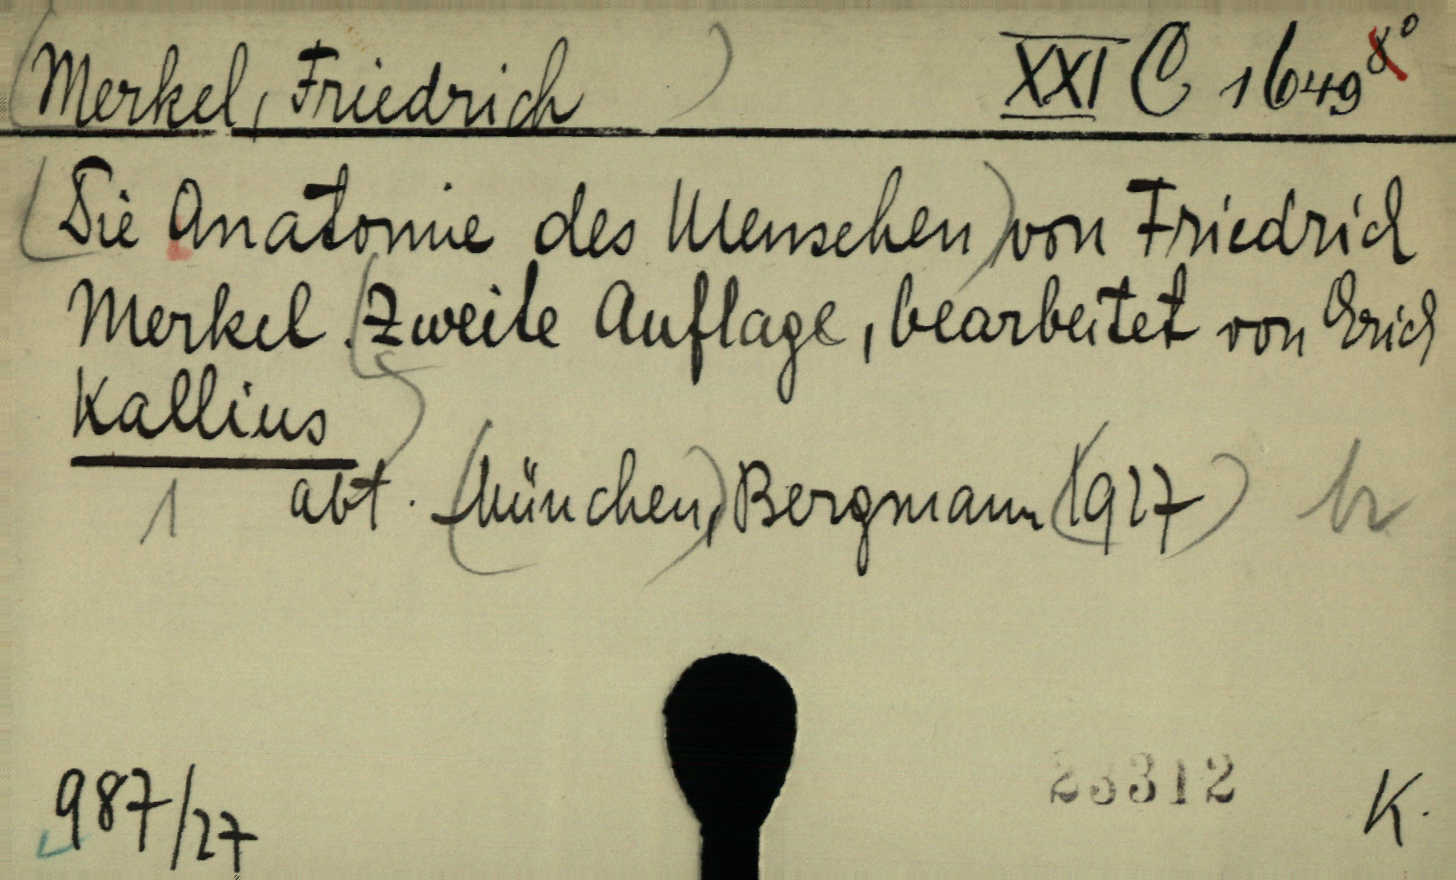 (Merkel, Friedrich) XXI C 1649 8°
(Die Anatomie des Menschen) von Friedrich
Merkel. (Zweite Auflage, bearbeitet von Erich
Kallius)
1 abt. (München), Bergmann (1927)
987/27 23312 K.